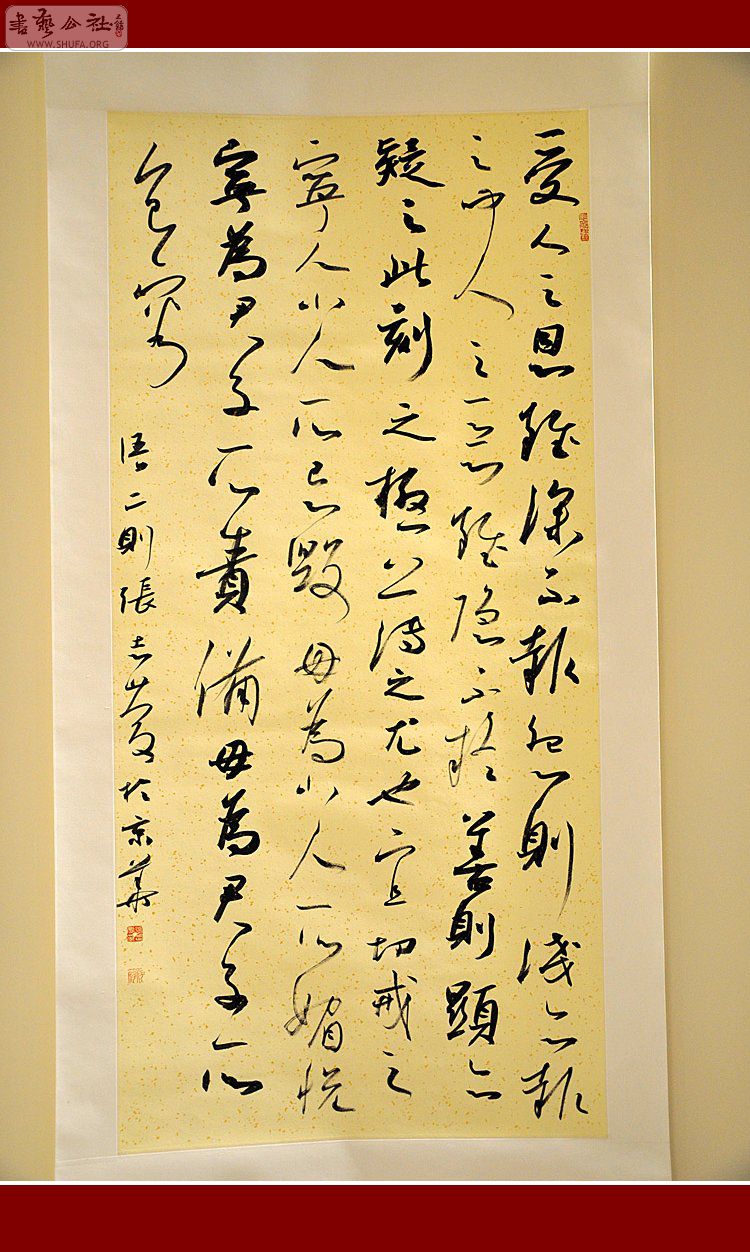 書藝公社
WWW.SHUFA.ORG
受人之恩雖深不報怨則淺亦報
之聞人之惡雖隱不疑善則顯亦
疑之此刻之極薄之尤也宜切戒之
寧為小人所忌毀毋為小人所媚悅
寧為君子所責備毋為君子所
包容
語二則張志慶於京華